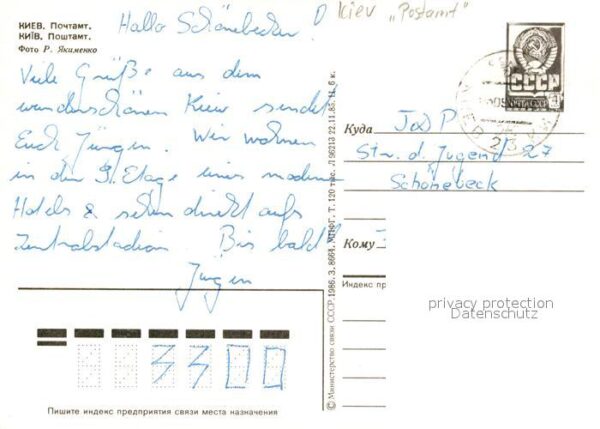 КИЕВ. Почтамт.
КИЇВ. Поштамт.
Фото Р. Якименко
Kiev „Postamt"
Hallo Schönebecker!
Viele Grüße aus dem
wunderschönen Kiew sendet
Euch Jürgen. Wir wohnen
in der 9. Etage eines modernen
Hotels & sehen direkt aufs
Zentralstadion. Bis bald!
Jürgen
СССР
ПОЧТА СССР
Куда J&P
Str. d. Jugend 27
Schönebeck
Кому
Индекс пр
privacy protection
Datenschutz
© Министерство связи СССР. 1986. З. 8664. МПФГ. Т. 120 тыс. Л 96213 22.11.85. Ц. 6 к.
3300
Пишите индекс предприятия связи места назначения